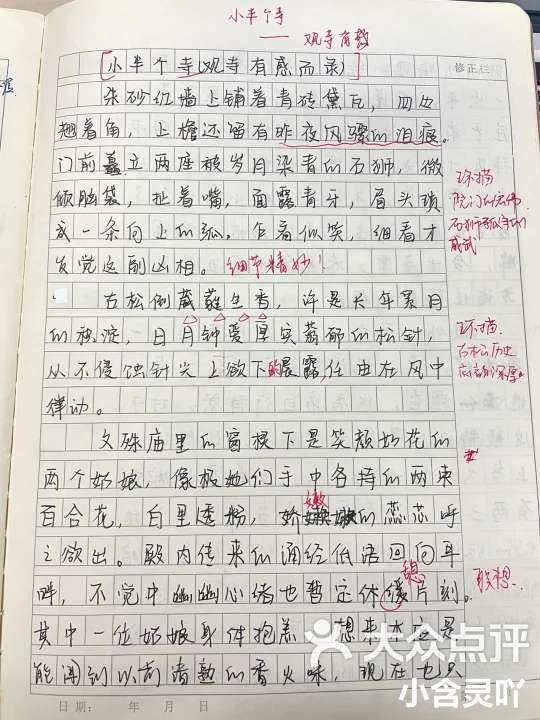 小半个寺
—— 观寺有感
[小半个寺(观寺有感而录)]
修正栏
朱砂红墙上铺着青砖黛瓦，四边
翘着角，上檐还留有昨夜风骤的泪痕。
门前矗立两座被岁月染青的石狮，微
倾脑袋，扯着嘴，面露青牙，眉头锁
成一条向上的弧，乍看似笑，细看才
发觉这副凶相。细节精妙！
环境描
院门的宏伟
石狮
威武
古松倒葳蕤生香，许是长年累月
的沉淀，一日月钟爱厚实蓊郁的松针，
从不侵蚀针尖上欲下的晨露，任由在风中
律动。
环描
古松历史
文殊庙里的窗棂下是笑颜如花的
两个姑娘，像极她们手中各持的两束
百合花，白里透粉，娇嫩的蕊芯呼
之欲出。殿内传来的诵经低语回向耳
畔，不觉中幽幽心绪也暂定休憩片刻。
联想
其中一位姑娘身体抱恙，想来本应是
能闻到以前清熟的香火味，现在也只
日期： 年 月 日
大众点评
小含灵吖